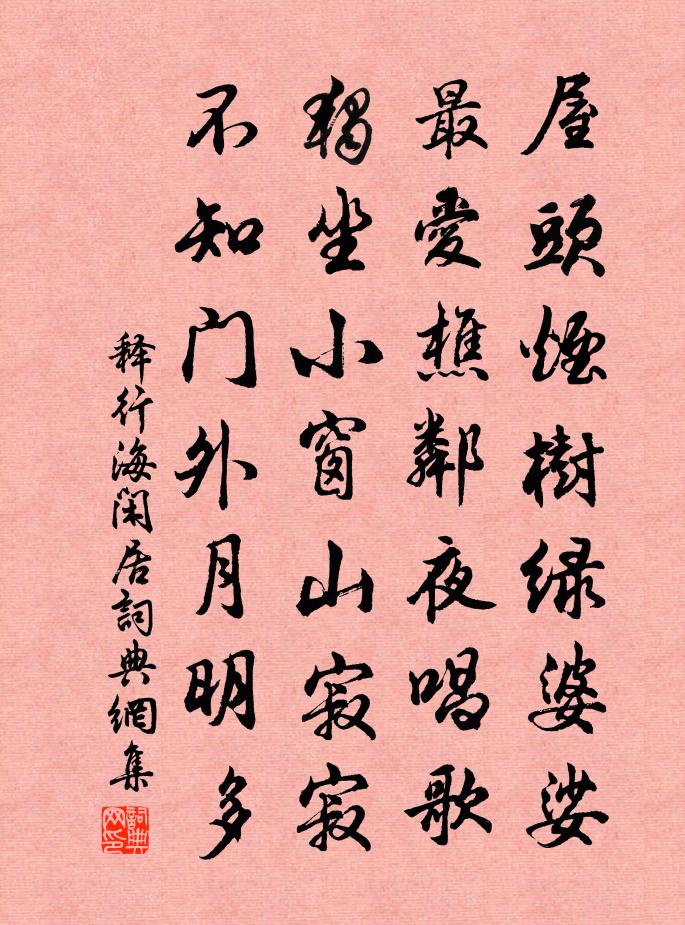 屋頭煙樹緑婆娑
最愛樵鄰夜唱歌
獨坐小窗山寂寂
不知门外月明多
释行海閑居詞典網集
詞典网印